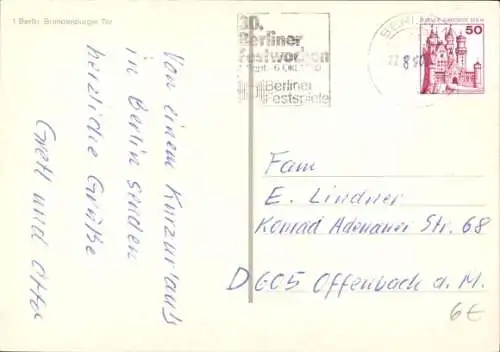 1 Berlin Brandenburger Tor
30.
Berliner
Festwochen
Berliner
Festspiele
50
Von einem Kurzurlaub
in Berlin senden
herzliche Grüße
Gretl und Otto
Fam
E. Lindner
Konrad Adenauer Str. 68
D 605 Offenbach a. M.
6€